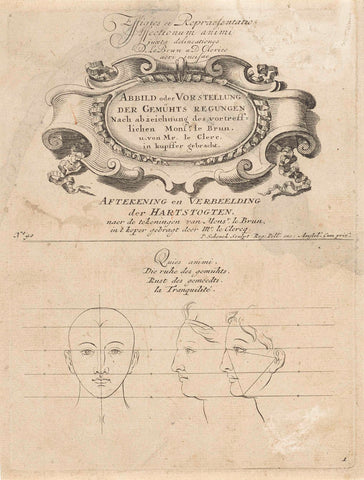 Effigies et Repræsentatio
Affectionum animi
juxta delineationes
D. le Brun a D. Clerico
aeri incisae
ABBILD oder VORSTELLUNG
DER GEMÜHTS REGUNGEN
Nach abzeichnung des vortreff-
lichen Monsr. le Brun.
u. von Mr. le Clerc.
in kupffer gebracht.
AFTEKENING en VERBEELDING
der HARTSTOGTEN.
naer de tekeningen van Monsr. le Brun,
in't koper gebragt door Mr. le Clercq.
P. Schenck Sculpt. Reg: Amstel. Cum priv:
Quies animi.
Die ruhe des gemühts.
Rust des gemoedts.
la Tranquilité.
1